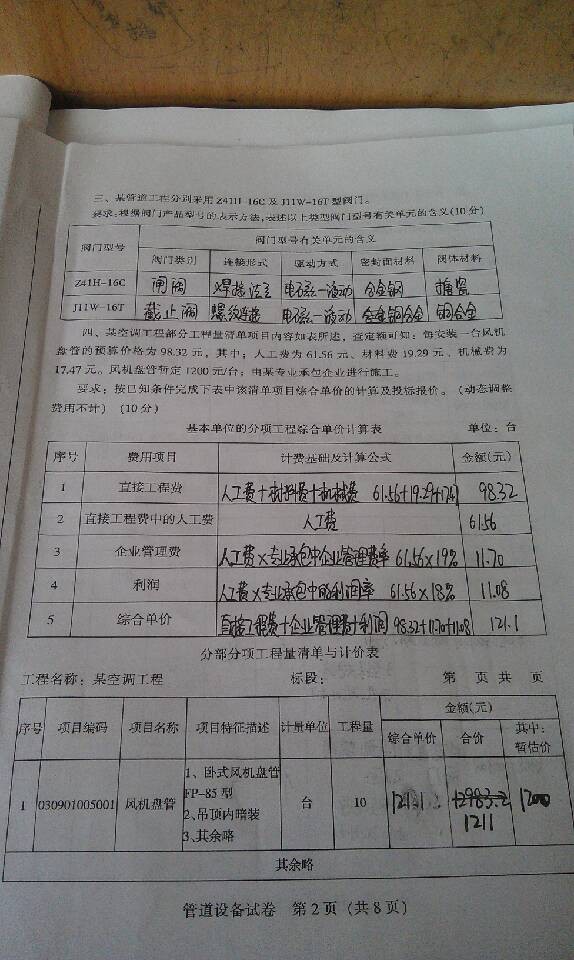 三、某管道工程分别采用 Z41H-16C 及 J11W-16T 型阀门。
要求:根据阀门产品型号的表示方法,表述以上类型阀门型号有关单元的含义(10 分)
阀门型号 阀门型号有关单元的含义
阀门类别 连接形式 驱动方式 密封面材料 阀体材料
Z41H-16C 闸阀 焊接法兰 电磁—液动 合金钢 搪瓷
J11W-16T 截止阀 螺纹连接 电磁—液动 合金钢合金 铜合金
四、某空调工程部分工程量清单项目内容如表所述,查定额可知:每安装一台风机
盘管的预算价格为 98.32 元,其中:人工费为 61.56 元、材料费 19.29 元、机械费为
17.47 元。风机盘管暂定 1200 元/台;由某专业承包企业进行施工。
要求:按已知条件完成下表中该清单项目综合单价的计算及投标报价。(动态调整
费用不计) (10 分)
基本单位的分项工程综合单价计算表 单位:台
序号 费用项目 计费基础及计算公式 金额(元)
1 直接工程费 人工费+材料费+机械费 61.56+19.29+17.47 98.32
2 直接工程费中的人工费 人工费 61.56
3 企业管理费 人工费×专业承包中企业管理费率 61.56×19% 11.70
4 利润 人工费×专业承包中的利润率 61.56×18% 11.08
5 综合单价 直接工程费+企业管理费+利润 98.32+11.70+11.08 121.1
分部分项工程量清单与计价表
工程名称:某空调工程 标段: 第 页 共 页
序号 项目编码 项目名称 项目特征描述 计量单位 工程量 金额(元)
综合单价 合价 其中:
暂估价
1 030901005001 风机盘管 1、卧式风机盘管
FP-85 型
2、吊顶内暗装
3、其余略
台 10 121.1 12983.2 1200
1211
其余略
管道设备试卷 第 2 页 (共 8 页)